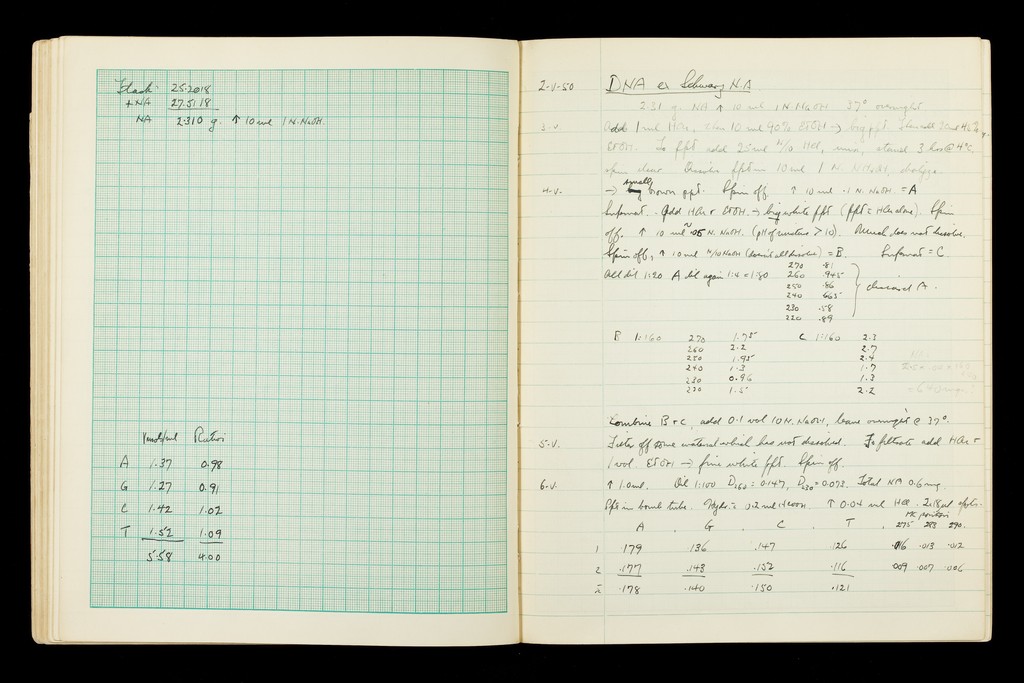 Flask 25.2018
+ NA 27.5118
NA 2.310 g. ↑ 10 ml 1 N. NaOH.
μmol/ml Ratios
A 1.37 0.98
G 1.27 0.91
C 1.42 1.02
T 1.52 1.09
5.58 4.00
2-V-50 DNA ex Schwarz N.A.
2.31 g. NA ↑ 10 ml 1 N NaOH 37° overnight
3-V. Add 1 ml HAc, then 10 ml 90% EtOH → big ppt.
EtOH. To ppt add 20 ml N/10 HCl, mix, stand 3 hrs @ 4°C,
spin down Dissolve ppt in 10 ml 1 N. NaOH,
4-V. → small brown ppt. Spin off. ↑ 10 ml .1 N. NaOH = A
Supernat. Add HAc + EtOH → big white ppt (ppt c̄ HAc alone). Spin
off. ↑ 10 ml ~ .05 N. NaOH. (pH of mixture > 10). Much does not dissolve.
Spin off, ↑ 10 ml N/10 NaOH (doesn't all dissolve) = B. Supernat = C.
All dil 1:20 A dil again 1:4 = 1:80
270 .81
260 .945
250 .86
240 .665
230 .58
220 .89
discard A.
B 1:160 270 1.75 C 1:160 2.3
260 2.2 2.7
250 1.95 2.4
240 1.3 1.7
230 0.96 1.3
220 1.5 2.2
Combine B + C, add 0.1 vol 10 N. NaOH, leave overnight @ 37°.
5-V. Filter off some material which has not dissolved. To filtrate add HAc +
1 vol. EtOH → fine white ppt. Spin off.
6-V. ↑ 1.0 ml. Dil 1:100 D260 = 0.147, D230 = 0.073. Total NA 0.6 mg.
Ppt in bomb tube. Hydr. c̄ 0.2 ml HCOOH. ↑ 0.04 ml HCl. 2x18 μl spots.
A . G . C . T , 275 283 290.
1 .179 .136 .147 .126 .016 .013 .012
2 .177 .143 .152 .116 .009 .007 .006
.178 .140 .150 .121